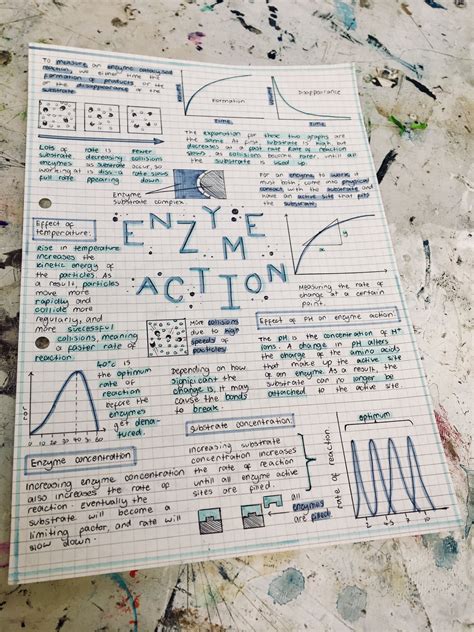 To measure an enzyme catalysed
reaction, we either time the
formation of products
or the disappearance of the
substrate.
Volume
Formation
Time
Disappearance
Time
Lots of substrate enzymes working at full rate
rate is decreasing as substrate is
fewer collisions occur, so rate slows down.
The explanation for these two graphs are
the same. At first, substrate is high, but
decreases at a fast rate. Rate of reaction
slows as collisions become rarer, until all
the substrate is used up.
Enzyme
substrate complex.
For an enzyme to work it
must both, come into physical
contact with the substrate and
have an active site that fits
the substrate.
ENZYME
ACTION
y
x
Measuring the rate of
change at a certain
point.
Effect of
temperature:
Rise in temperature
increases the
kinetic energy of
the particles. As
a result, particles
move more
rapidly and
collide more
regularly, and
more successful
collisions, meaning
a faster rate of
reaction.
More collisions
due to high
speeds of
particles
Effect of PH on enzyme action:
The PH is the concentration of H+
ions. A change in PH alters
the charge of the amino acids
that make up the active site
of an enzyme. As a result, the
substrate can no longer be
attached to the active site.
40°c is
the optimum
rate of
reaction
before the
enzymes
get dena-
tured.
10 20 30 40 50 60
Depending on how
significant the
change is, it may
cause the bonds
to break.
Substrate concentration:
Increasing substrate
concentration increases
the rate of reaction
until all enzyme active
sites are filled.
all
enzymes
are filled
Enzyme concentration:
Increasing enzyme concentration
also increases the rate of
reaction. eventually the
substrate will become a
limiting factor, and rate will
slow down.
optimum
rate of reaction
2 4 6 8 10